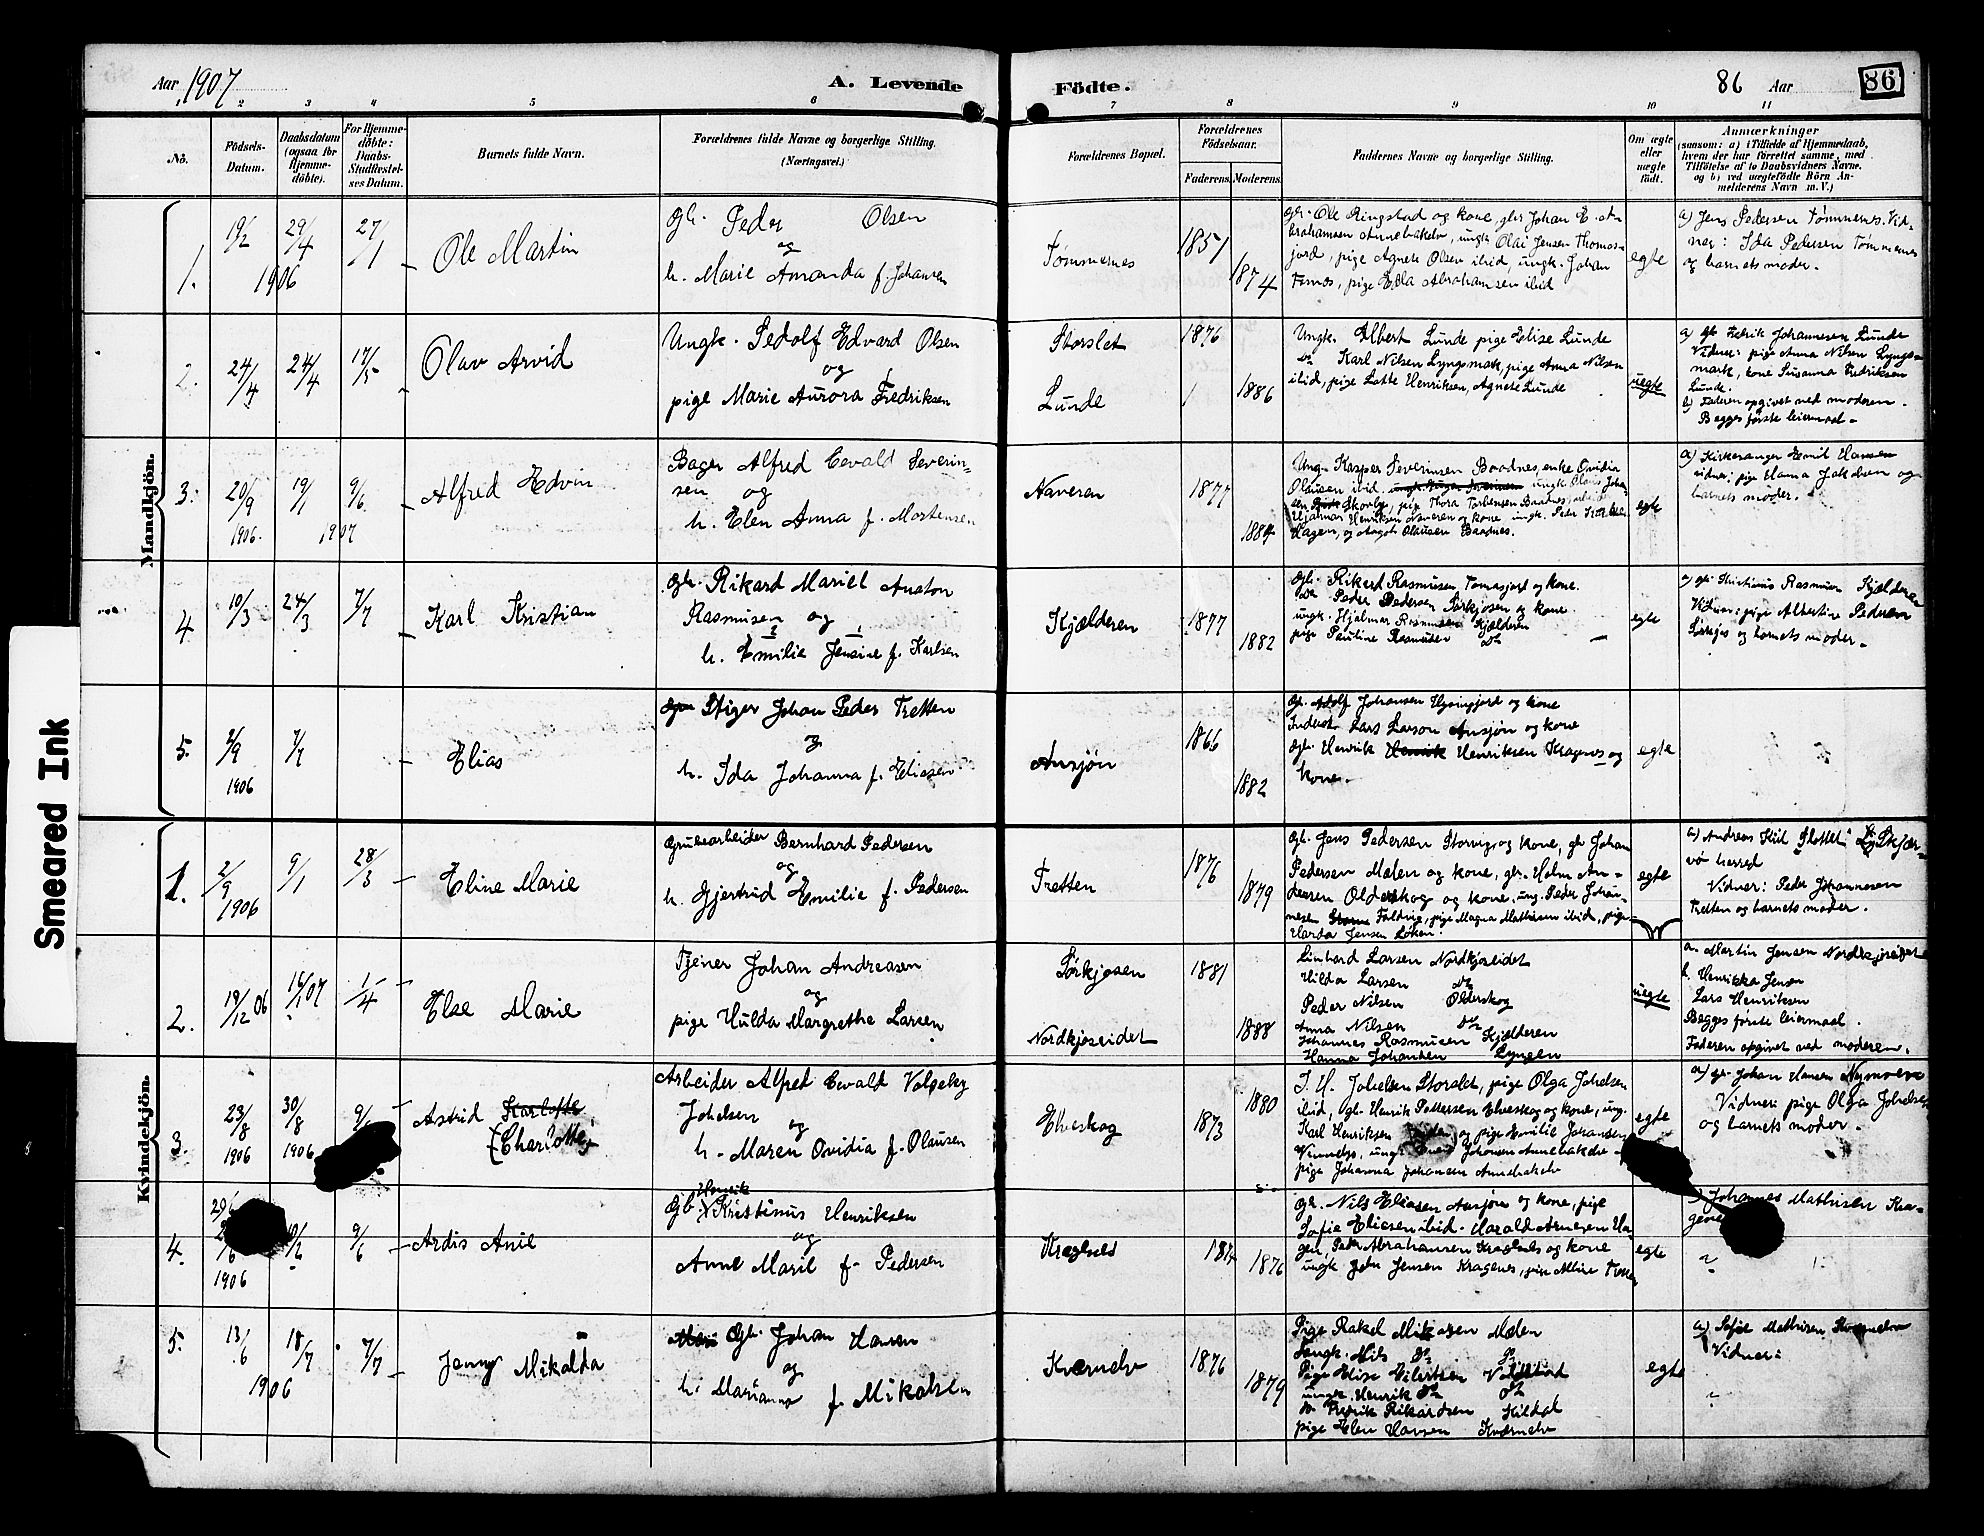 Smeared Ink
Aar 1907
A. Levende
Födte.
86 Aar 86
1 2 3 4 5 6 7 8 9 10 11
No.
Födsels-
Datum.
Daabsdatum
(ogsaa for
Hjemme-
döbte).
For Hjemme-
döbte:
Daabs-
Stadfæstel-
ses Datum.
Barnets fulde Navn.
Forældrenes fulde Navne og borgerlige Stilling.
(Næringsvei.)
Forældrenes Bopæl.
Forældrenes
Födselsaar.
Faderens.
Moderens.
Faddernes Navne og borgerlige Stilling.
Om ægte
eller
uægte
födt.
Anmærkninger
(saasom: a) i Tilfælde af Hjemmedaab,
hvem der har forrettet samme, med
Tilföielse af to Daabsvidners Navne.
og b) ved uægtefödte Börn An-
melderens Navn m. V.)
Mandkjön.
1. 19/2 29/4 27/1
1906
Ole Martin
Gb. Peder Olsen
og
h. Marie Amanda f. Johansen
Tømmernes
1851
1874
gb. Ole Ringstad og kone, gbr Johan E. A-
brahamsen Annebakelv, ungk Olai Jensen Thomas-
jord, pige Agnete Olsen ibid, ungk. Johan
pige Edla Abrahamsen ibid
egte
a) Jens Pedersen Tømmernes. Vid-
ner: Ida Pedersen Tømmernes
og barnets moder.
2. 24/4 24/4 17/5
Olav Arvid
Ungk. Pedolf Edvard Olsen
og
pige Marie Aurora Fredriksen
Storslet
Lunde
1876
1886
Ungk. Albert Lunde pige Elise Lunde
do Karl Nilsen Lyngsmark, pige Anna Nilsen
ibid, pige Lotte Henriksen, Agnete Lunde
uegte
a) gb Fedrik Johannesen Lunde
Vidner: pige Anna Nilsen Lyngs-
mark, kone Susanna Fredriksen
Lunde.
b) Faderen opgivet ved moderen.
Begges første leiermaal.
3. 20/9 19/1 9/6.
1906. 1907
Alfred Edvin
Bager Alfred Eevald Severin-
sen og
h. Elen Anna f. Mortensen
Naveren
1877
1884
Ung. Kasper Severinsen Baadnes, enke Ovidia
Olausen ibid ungk. Olaus Joha-
pige Thora Torbensen Baadnes
Hjalmar Henriksen Naveren og kone ungk. Peder
Hagen, og Olausen Baadnes.
egte
a) Kirkesanger Hemil Hansen
vidner: pige Hanna Jakobsen og
barnets moder.
4. 10/3 24/3 7/7
Karl Kristian
Gb. Rikard Mariel Anston
Rasmusen og
h. Emilie Jensine f. Karlsen
Kjælderen
1877
1882
Gb. Rikard Rasmusen Tomasjord og kone.
do Peder Pedersen Sørkjosen og kone.
ungk. Hjalmar Rasmusen Kjælderen
pige Pauline Rasmusen do
egte
a) gb. Kristianus Rasmusen Kjælderen
Vidner: pige Albertine Pedersen
Sørkjos og barnets moder.
5. 2/9 1/1
1906
Elias
Stiger Johan Peder Tretten
og
h. Ida Johanna f. Eliasen
Ansjön
1866
1882
Gb. Adolf Johansen og kone
Inderst Lars Larson Ansjøn og kone
Gb. Henrik Henriksen Kragnes og
kone.
egte
Kvindekjön.
1. 2/9 9/1 28/3
1906
Eline Marie
Grubearbeider Bernhard Pedersen
og
h. Gjertrud Emilie f. Pedersen
Tretten
1876
1879
gb. Jens Pedersen Storvig og kone, gb Johan
Pedersen Molen og kone, gb. Holm An-
dersen Olderskog og kone, ung. Peder Johan-
nesen Faldvig, pige Magna Mathisen ibid, pige
Harda Jensen Løken.
egte
a) Andreas Skjær-
vö herred
Vidner: Peder Johannesen
Tretten og barnets moder.
2. 19/12 06 16/1 07 1/4
Else Marie
Tjener Johan Andreasen
og
pige Hulda Margrethe Larsen
Sørkjosen
Nordkjoseidet
1881
1888
Linhard Larsen Nordkjoseidet
Hilda Larsen do
Peder Nilsen Olderskog
Anna Nilsen do
Johannes Rasmusen Kjælderen
Hanna Johansen Lyngen
uegte
a. Martin Jensen Nordkjoseidet
h. Henrikka Jensen
Lars Henriksen
Begges første leiermaal.
Faderen opgivet ved moderen.
3. 23/8 30/8
1906 1906
Astrid Karlotte
(Charlotte)
Arbeider Alfred Ewald Volgeby
Johelsen
og
h. Maren Ovidia f. Olausen
Elveskog
1873
1880
J. H. Johelsen Storslet, pige Olga Johelsen
ibid, gb. Henrik Pettersen Elveskog og kone, ung.
Karl Henriksen og pige Emilie Johansen
ungk. Johansen Annebakelv
pige Johanna Johansen Annebakelv
egte
a) gb. Johan Hansen Nymoen
Vidner: pige Olga Johelsen
og barnets moder.
4. 9/6
1906
Ardis Anie
Gb. Henrik Kristinus Henriksen
og
Anne Maril f. Pedersen
Kragnes
1876
gb. Nils Eliasen Ansjøn og kone, pige
Sofie Eliasen ibid. Harald Arnesen Ha-
gen, Peder Abrahamsen Kragnes og kone
ungk Jensen Kragenes, pige
egte
Johannes Mathisen Kra-
genes
5. 13/6 18/7 7/7
1906
Jenny Mikalda
Gb. Johan Hansen
og
h. Marianna f. Mikalsen
Kvernelv
1876
1879
Pige Rakel Mikalsen Molen
Ungk. Nils do do
Pige Elise Eilertsen
ungk. Henrik do do
do Fredrik Rikardsen Kildal
pige Elen Hansen Kvernelv
egte
a) Sofie Mathisen Kvernelv
Vidner: